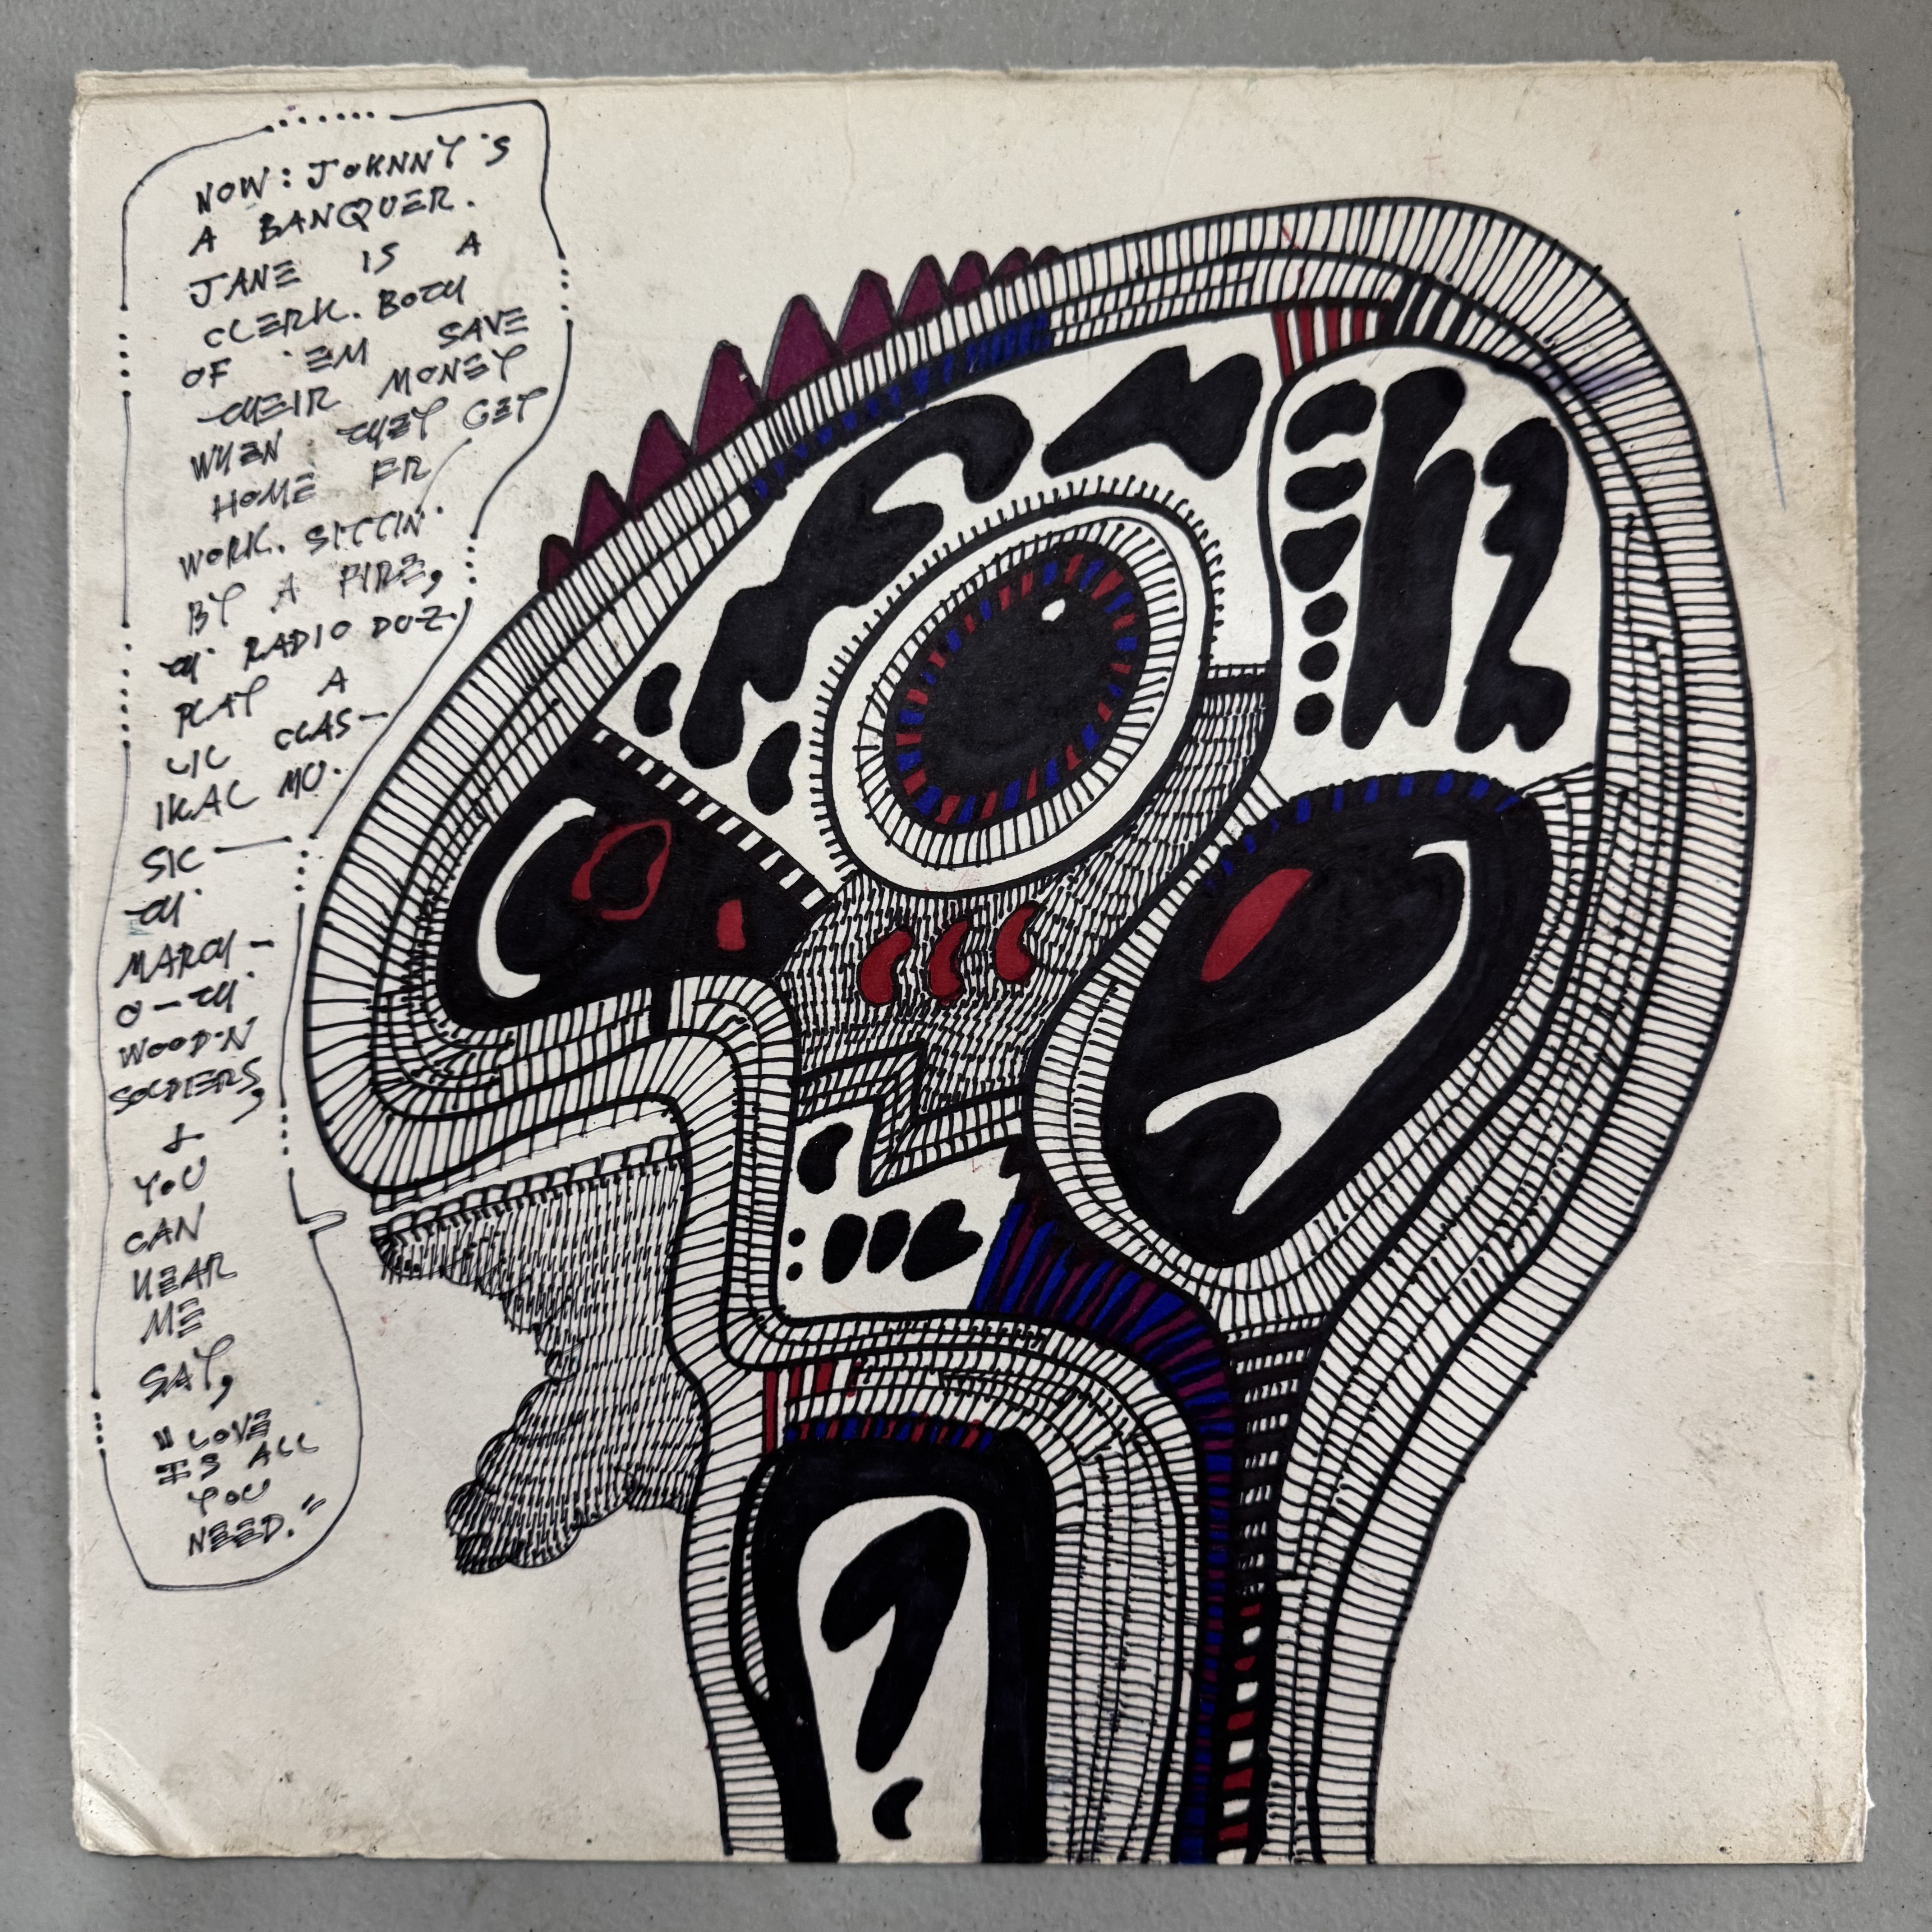 NOW: JOHNNY'S
A BANQUER.
JANE IS A
CLERK. BOTH
OF 'EM SAVE
THEIR MONEY
WHEN THEY GET
HOME FR
WORK. SITTIN'
BY A FIRE,
TH' RADIO DUZ.
PLAY A
LIL CLAS-
IKAL MU.
SIC —
TH'
MARCH-
O-TH'
WOOD'N
SOLDIERS,
&
YOU
CAN
HEAR
ME
SAY,
"LOVE
IS ALL
YOU
NEED."